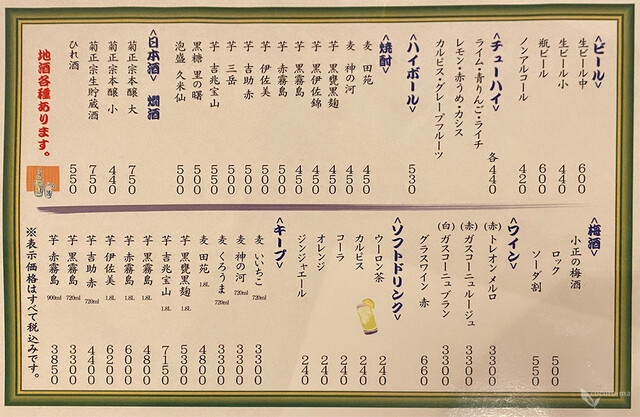 <ビール>
生ビール中 600
生ビール小 440
瓶ビール 600
ノンアルコール 420
<チューハイ>
ライム・青りんご・ライチ
レモン・赤うめ・カシス
カルピス・グレープフルーツ
各 440
<ハイボール> 530
<焼酎>
麦 田苑 450
麦 神の河 450
芋 黒甕黒麹 450
芋 黒伊佐錦 450
芋 黒霧島 450
芋 赤霧島 500
芋 伊佐美 500
芋 吉助 赤 500
芋 三岳 550
芋 吉兆宝山 550
黒糖 里の曙 500
泡盛 久米仙 500
<日本酒 燗酒>
菊正宗本醸 大 750
菊正宗本醸 小 440
菊正宗生貯蔵酒 750
ひれ酒 550
地酒各種あります。
<梅酒>
小正の梅酒
ロック 500
ソーダ割 550
<ワイン>
(赤) トレオン メルロ 3300
(赤) ガスコーニュルージュ 3300
(白) ガスコーニュブラン 3300
グラスワイン 赤 660
<ソフトドリンク>
ウーロン茶 240
カルピス 240
コーラ 240
オレンジ 240
ジンジャエール 240
<キープ>
麦 いいちこ 720ml 3300
麦 神の河 720ml 3300
麦 くろうま 720ml 3300
麦 田苑 1.8L 4800
芋 黒甕黒麹 1.8L 5300
芋 吉兆宝山 1.8L 7150
芋 黒霧島 1.8L 4800
芋 赤霧島 1.8L 6000
芋 伊佐美 1.8L 6200
芋 吉助 赤 720ml 4400
芋 黒霧島 720ml 3300
芋 赤霧島 900ml 3850
※表示価格はすべて税込みです。